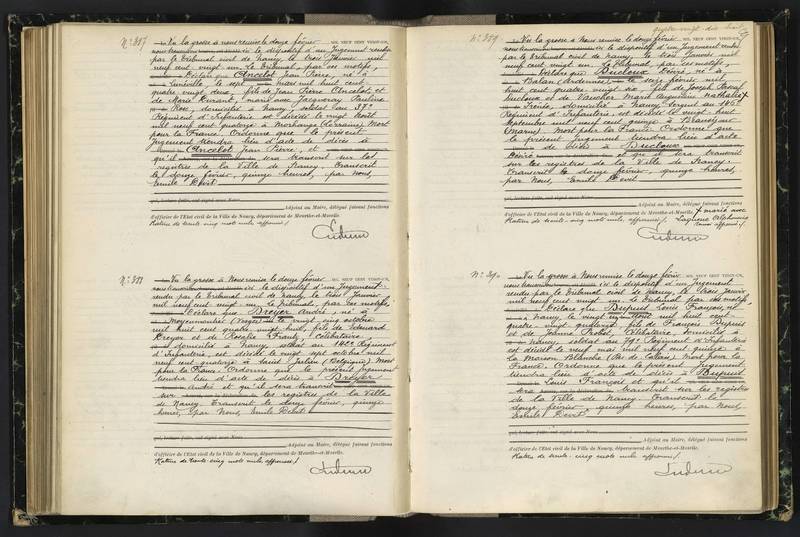 N° 387
Vu la grosse à nous remise le douze février MIL NEUF CENT VINGT-UN,
nous transcrivons ici le dispositif d'un Jugement rendu
par le tribunal civil de Nancy le trois Janvier mil
neuf cent vingt un. Le tribunal, par ces motifs,
Déclare que Ancelot Jean Pierre, né à
Lunéville le sept mars mil huit cent
quatre vingt deux, fils de Jean Pierre Ancelot et
de Marie Durand, marié avec Jacquoray Pauline
Rose, domicilié à Nancy, soldat au 37e
Régiment d'Infanterie est décédé le vingt Août
mil neuf cent quatorze à Morhange (Lorraine) Mort
pour la France. Ordonne que le présent
Jugement tiendra lieu d'acte de décès à
Ancelot Jean Pierre, et
qu'il sera transcrit sur les
registres de la Ville de Nancy. Transcrit
le douze février, quinze heures, par nous,
Emile Devit
qui, lecture faite, ont signé avec Nous
Adjoint au Maire, délégué faisant fonctions
d'officier de l'Etat civil de la Ville de Nancy, département de Meurthe-et-Moselle.
Rature de trente cinq mots nuls approuvé /.
N° 388
Vu la grosse à Nous remise le douze février MIL NEUF CENT VINGT-UN,
nous transcrivons ici le dispositif d'un Jugement
rendu par le tribunal civil de Nancy le trois Janvier
mil neuf cent vingt un. Le tribunal, par ces motifs,
Déclare que Dreyer André, né à
Moyenmoutier (Vosges) le vingt cinq octobre
mil huit cent quatre vingt huit, fils de Edouard
Dreyer et de Rosalie Frantz, Célibataire,
domicilié à Nancy, soldat au 162e Régiment
d'Infanterie, est décédé le vingt sept octobre mil
neuf cent quatorze à Saint Julien (Belgique) Mort
pour la France. Ordonne que le présent Jugement
tiendra lieu d'acte de décès à Dreyer
André et qu'il sera transcrit
sur les registres de la Ville
de Nancy. Transcrit le douze février, quinze
heures, par Nous, Emile Devit
qui, lecture faite, ont signé avec Nous
Adjoint au Maire, délégué faisant fonctions
d'officier de l'Etat civil de la Ville de Nancy, département de Meurthe-et-Moselle.
Rature de trente-cinq mots nuls approuvé /.
quatre vingt dix huit
N° 389
Vu la grosse à Nous remise le douze février MIL NEUF CENT VINGT-UN,
nous transcrivons ici le dispositif d'un Jugement rendu
par le tribunal civil de Nancy, le trois Janvier mil
neuf cent vingt un. Le tribunal, par ces motifs,
Déclare que Ducloux Désiré, né à
Balan (Ardennes) le douze février mil
huit cent quatre vingt dix, fils de Joseph
Ducloux et de Marie Augustine Nathalie
Irénée, domicilié à Nancy, Sergent au
Régiment d'Infanterie, est décédé le vingt huit
Septembre mil neuf cent quinze à
(Marne) Mort pour la France. Ordonne que
le présent Jugement tiendra lieu d'acte
de décès à Ducloux
Désiré et qu'il sera transcrit
sur les registres de la Ville de Nancy.
Transcrit le douze février, quinze heures,
par Nous, Emile Devit
qui, lecture faite, ont signé avec Nous
Adjoint au Maire, délégué faisant fonctions
d'officier de l'Etat civil de la Ville de Nancy, département de Meurthe-et-Moselle. x marié avec
Rature de trente-cinq mots nuls approuvé /.
N° 390
Vu la grosse à Nous remise le douze février MIL NEUF CENT VINGT-UN,
nous transcrivons ici le dispositif d'un Jugement
rendu par le tribunal civil de Nancy, le trois Janvier
mil neuf cent vingt un. Le tribunal, par ces motifs,
Déclare que Dupuis Louis François, né
à Nancy, le vingt mil huit cent
quatre vingt quatorze, fils de François Dupuis
et de Jeanne Probst, Célibataire, domicilié à
Nancy, soldat au 79e Régiment d'Infanterie
est décédé le neuf mai mil neuf cent quinze à
la Maison Blanche (Pas de Calais) Mort pour la
France. Ordonne que le présent Jugement
tiendra lieu d'acte de décès à Dupuis
Louis François et qu'il
sera transcrit sur les registres
de la Ville de Nancy. Transcrit le
douze février, quinze heures, par Nous,
Emile Devit
qui, lecture faite, ont signé avec Nous
Adjoint au Maire, délégué faisant fonctions
d'officier de l'Etat civil de la Ville de Nancy, département de Meurthe-et-Moselle.
Rature de trente-cinq mots nuls approuvé /.